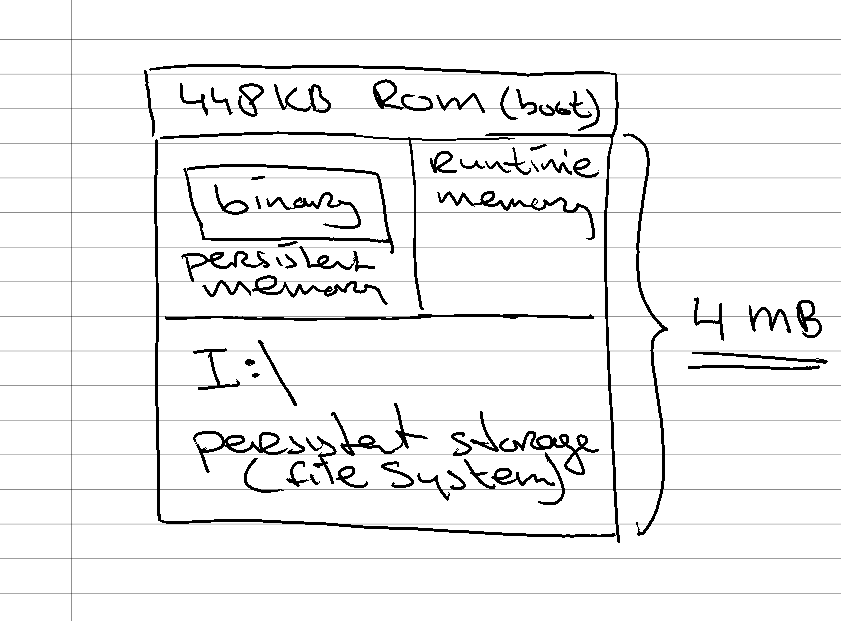 448KB ROM (boot)
binary
persistent
memory
Runtime
memory
4 MB
I:\
persistent storage
(file system)